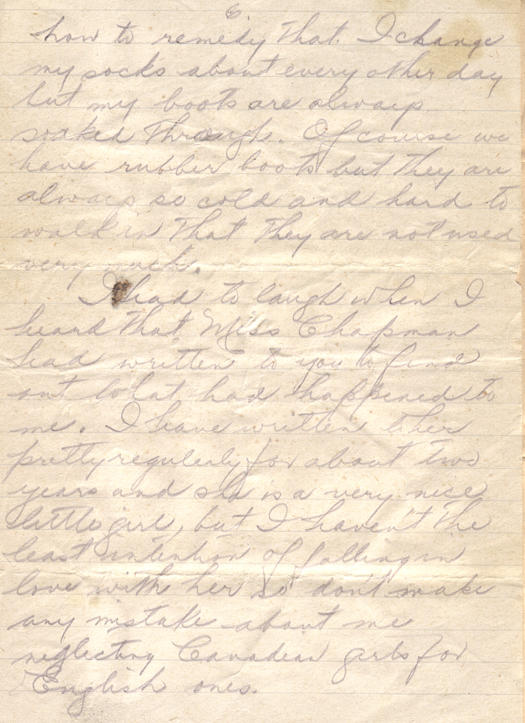 6
how to remedy that. I change
my socks about every other day
but my boots are always
soaked through. Of course we
have rubber boots but they are
always so cold and hard to
walk in that they are not used
very much.
I had to laugh when I
heard that Miss Chapman
had written to you to find
out what had happened to
me. I have written to her
pretty regularly for about two
years and she is a very nice
little girl, but I haven't the
least intention of falling in
love with her so don't make
any mistake about me
neglecting Canadian girls for
English ones.